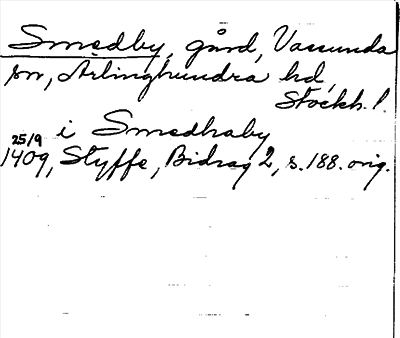 Smedby, gård, Vassunda
sn, Ärlinghundra hd,
Stockh. l.
i Smedhaby
25/9
1409, Styffe, Bidrag 2, s. 188. orig.